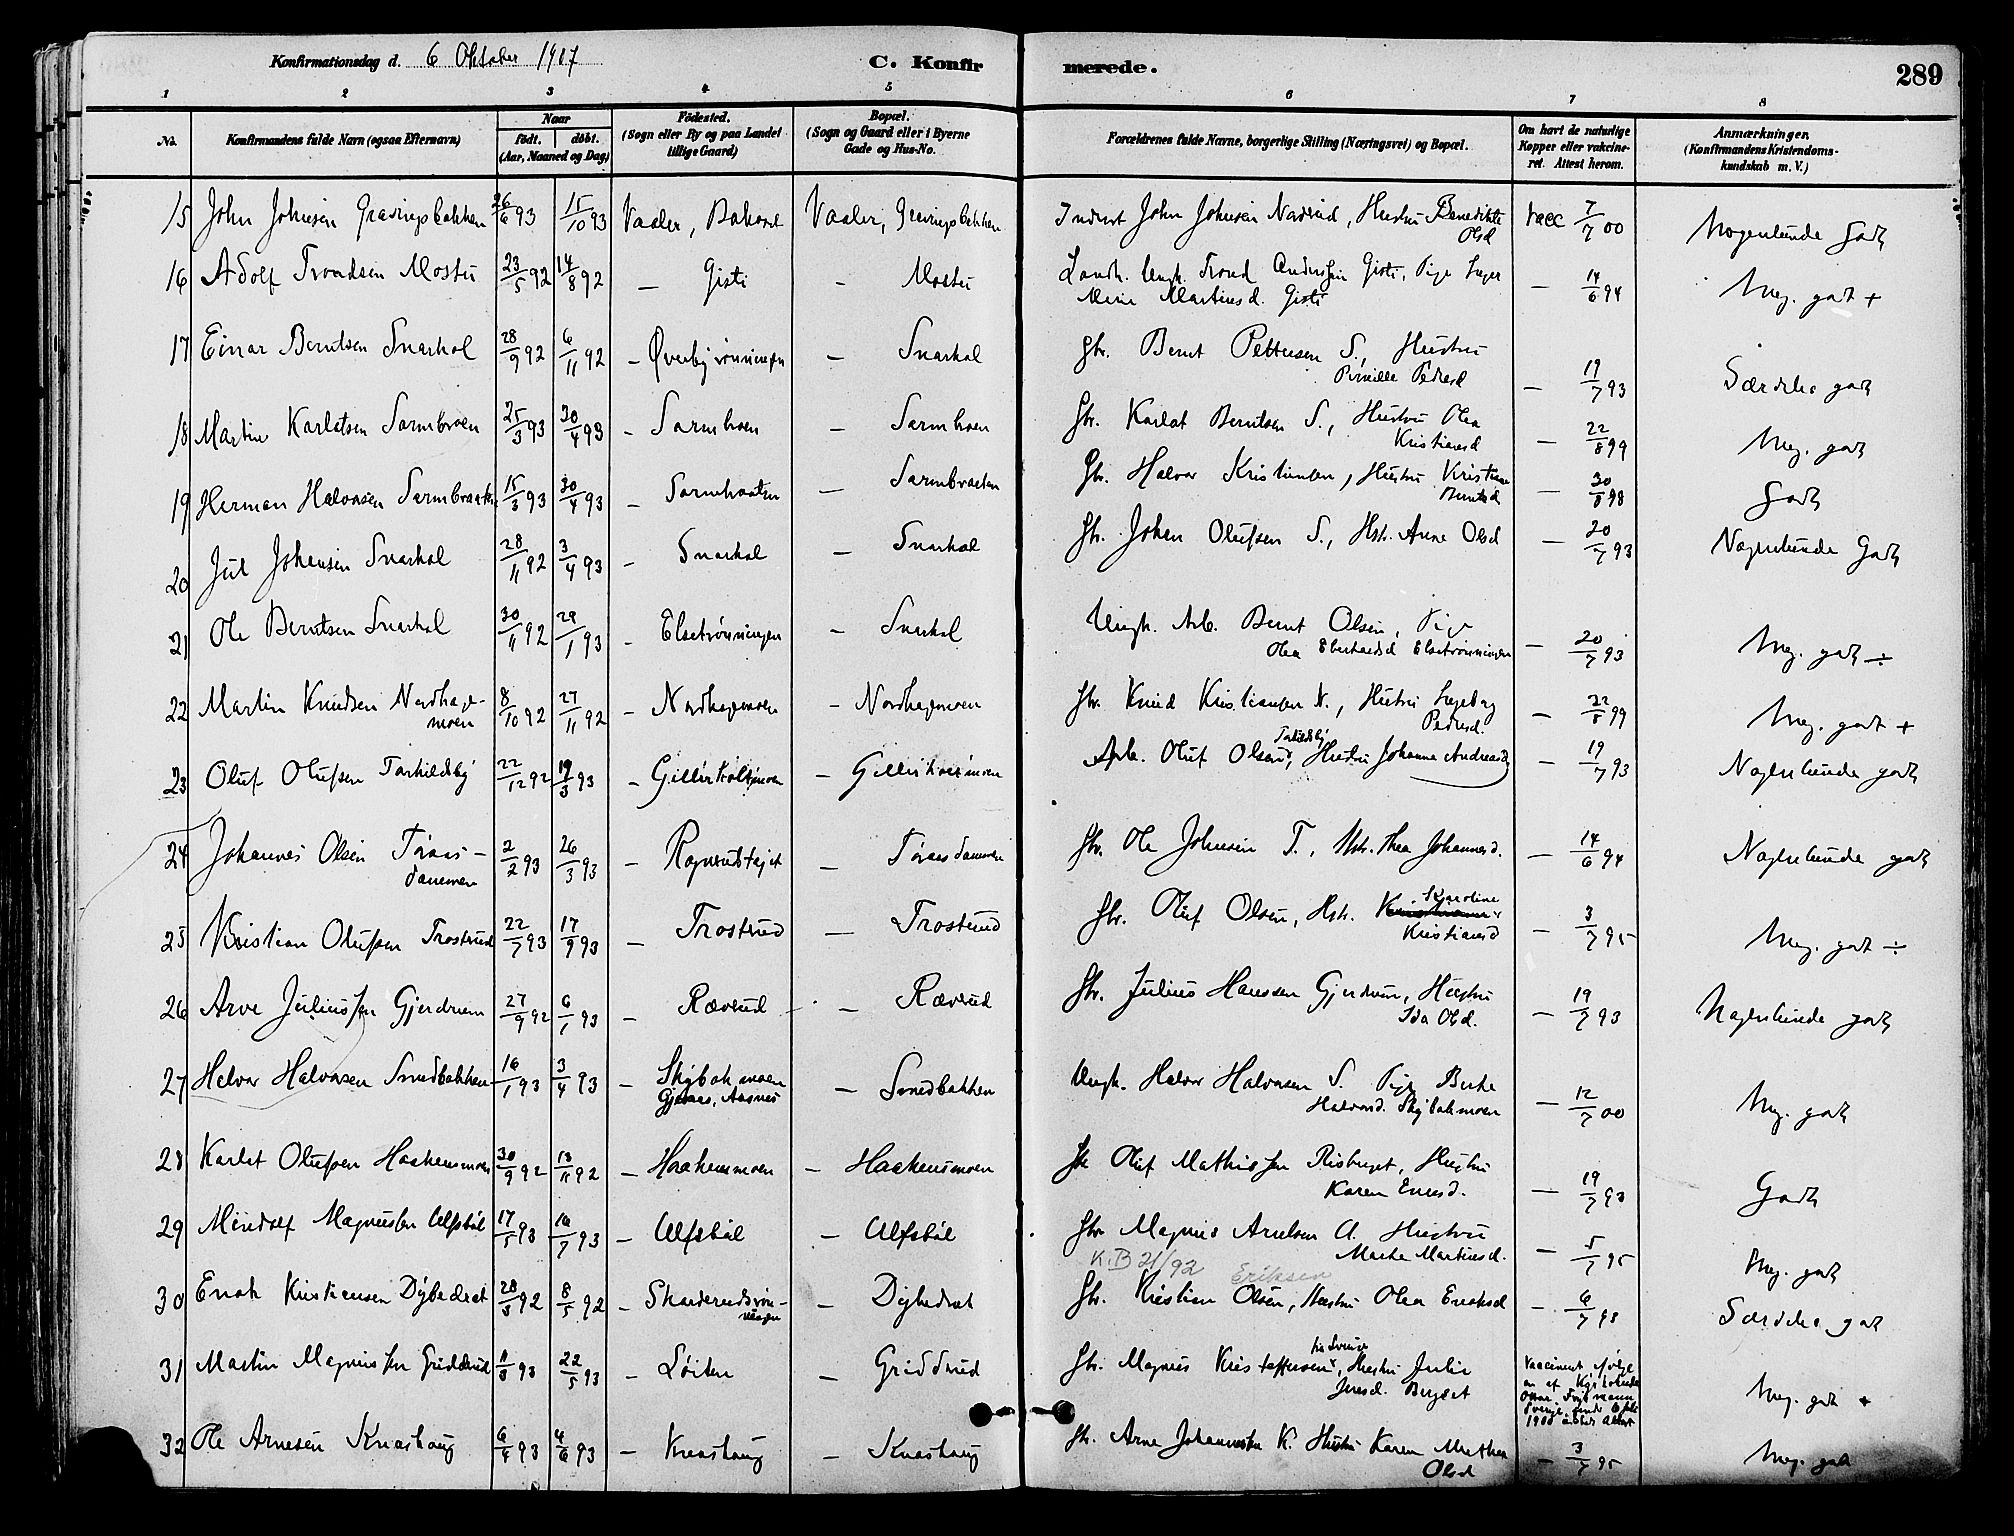 Konfirmationsdag d. 6 Oktober 1907
C. Konfir
merede.
289
1 2 3 4 5 6 7 8
No.
Konfirmandens fulde Navn (ogsaa Efternavn)
Naar
födt. döbt.
(Aar, Maaned og Dag)
Födested.
(Sogn eller By og paa Landet
tillige Gaard)
Bopæl.
(Sogn og Gaard eller i Byerne
Gade og Hus-No.
Forældrenes fulde Navne, borgerlige Stilling (Næringsvei) og Bopæl.
Om havt de naturlige
Kopper eller vakcine-
ret. Attest herom.
Anmærkninger.
(Konfirmandens Kristendoms-
kundskab m. V.)
15 John Johnsen Gravingsbakken 26/6 93 15/10 93 Vaaler, Vaaler, Gravingsbakken Inderst John Johnsen Hustru Benedikte Olsd vacc 7/7 00 Nogenlunde Godt
16 Adolf Trondsen Mostu 23/5 92 14/8 92 — Gisti — Mostu Ungk. Trond Andersen Gisti, Pige Inger
Marie Martinusd. Gisti — 14/6 94 Meg. godt +
17 Einar Berntsen Snarhol 28/9 92 6/11 92 — Øverbyrönningen — Snarhol Gbr. Bernt Pettersen S., Hustru
Pernille Pedersd — 19/7 93 Særdeles godt
18 Martin Karlotsen Sormbroen 25/3 93 30/4 93 — Sormhoen — Sormhoen Gbr. Karlot Berntsen S., Hustru Olea
Kristiansd — 22/8 99 Meg. godt
19 Herman Halvorsen Sormbraaten 15/3 93 30/4 93 — Sormbraaten — Sormbraaten Gbr. Halvor Kristiansen, Hustru Kristiane
Berntsd — 30/8 98 Godt
20 Jul Johansen Snarhol 28/11 92 3/4 93 — Snarhol — Snarhol Gbr. Johan Olufsen S., Hstr. Anne Olsd — 20/7 93 Nogenlunde Godt
21 Ole Berntsen Snarhol 30/11 92 29/1 93 — Elsetrönningen — Snarhol Ungk. Arb. Bernt Olsen, Pige
Olea Eberhardsd Elsetrönningen — 20/7 93 Meg. godt ÷
22 Martin Knudsen Nordhage-
moen 8/10 92 27/11 92 — Nordhagemoen — Nordhagemoen Gbr. Knud Kristiansen N., Hustru Ingeborg
Pedersd. — 22/8 99 Meg. godt +
23 Oluf Olufsen Torkildsby 22/12 92 19/3 93 — — Arb. Oluf Olsen Torkildsby, Hustru Johanne Andreasd — 19/7 93 Nogenlunde godt
24 Johannes Olsen Töraas-
dammen 2/2 93 26/3 93 — — Töraasdammen Gbr. Ole Johnsen T., Hstr. Thea Johannesd. — 14/6 94 Nogenlunde godt
25 Kristian Olufsen Trostrud 22/7 93 17/9 93 — Trostrud — Trostrud Gbr. Oluf Olsen, Hstr. Karoline
Kristiansd — 3/7 95 Meg. godt ÷
26 Arve Juliussen Gjerdrum 27/9 92 6/1 93 — Rævrud — Rævrud Gbr. Julius Hanssen Gjerdrum, Hustru
Ida Olsd. — 19/7 93 Nogenlunde godt
27 Halvor Halvorsen Smedbakken 16/1 93 3/4 93 — Skybakmoen
Gjesaas, Aasnes — Smedbakken Ungk. Halvor Halvorsen S. Pige Berte
Halvorsd. Skybakmoen — 12/7 00 Meg. godt
28 Karlot Olufsen Haakensmoen 30/9 92 13/11 92 — Haakensmoen — Haakensmoen Gbr Oluf Mathissen Risberget, Hustru
Karen Evensd. — 19/7 93 Godt
29 Mindolf Magnussen Ulfsböl 17/5 93 16/7 93 — Ulfsböl — Ulfsböl Gbr Magnus Arnesen U. Hustru
Marte Martinusd. — 5/7 95 Meg. godt
K.B 21/92 Eriksen
30 Enok Kristiansen Dybedræt 28/3 92 8/5 92 — Skarderudsrön-
ningen — Dybedræt Gbr. Kristian Olsen, Hustru Olea Eriksd — 6/7 98 Særdeles godt
31 Martin Magnussen Griddrud 11/3 93 22/5 93 — Löiten — Griddrud Gbr. Magnus Kristoffersen fra Sverige, Hustru Julie
Jensd. Berget Vaccineret ifölge
Meg. godt +
32 Ole Arnesen Knashaug 6/4 93 4/6 93 — Knashaug — Knashaug Gbr. Arne Johannesen K. Hustru Karen Mathea
Olsd — 3/7 95 Meg. godt